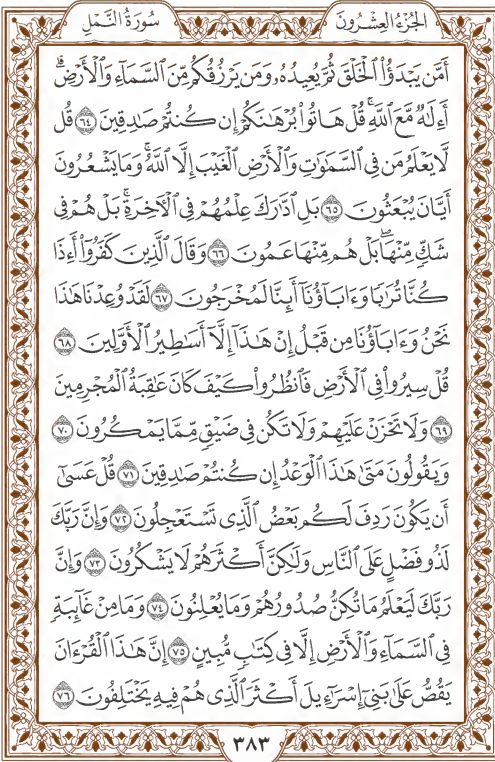 الجُزْءُ العِشْرُونَ
سُورَةُ النَّمْلِ
أَمَّن يَبْدَؤُا۟ ٱلْخَلْقَ ثُمَّ يُعِيدُهُۥ وَمَن يَرْزُقُكُم مِّنَ ٱلسَّمَآءِ وَٱلْأَرْضِ ۗ
أَءِلَٰهٌ مَّعَ ٱللَّهِ ۚ قُلْ هَاتُوا۟ بُرْهَٰنَكُمْ إِن كُنتُمْ صَٰدِقِينَ ٦٤ قُل
لَّا يَعْلَمُ مَن فِى ٱلسَّمَٰوَٰتِ وَٱلْأَرْضِ ٱلْغَيْبَ إِلَّا ٱللَّهُ ۚ وَمَا يَشْعُرُونَ
أَيَّانَ يُبْعَثُونَ ٦٥ بَلِ ٱدَّٰرَكَ عِلْمُهُمْ فِى ٱلْءَاخِرَةِ ۚ بَلْ هُمْ فِى
شَكٍّ مِّنْهَا ۖ بَلْ هُم مِّنْهَا عَمُونَ ٦٦ وَقَالَ ٱلَّذِينَ كَفَرُوٓا۟ أَءِذَا
كُنَّا تُرَٰبًا وَءَابَآؤُنَآ أَئِنَّا لَمُخْرَجُونَ ٦٧ لَقَدْ وُعِدْنَا هَٰذَا
نَحْنُ وَءَابَآؤُنَا مِن قَبْلُ إِنْ هَٰذَآ إِلَّآ أَسَٰطِيرُ ٱلْأَوَّلِينَ ٦٨
قُلْ سِيرُوا۟ فِى ٱلْأَرْضِ فَٱنظُرُوا۟ كَيْفَ كَانَ عَٰقِبَةُ ٱلْمُجْرِمِينَ
٦٩ وَلَا تَحْزَنْ عَلَيْهِمْ وَلَا تَكُن فِى ضَيْقٍ مِّمَّا يَمْكُرُونَ ٧٠
وَيَقُولُونَ مَتَىٰ هَٰذَا ٱلْوَعْدُ إِن كُنتُمْ صَٰدِقِينَ ٧١ قُلْ عَسَىٰٓ
أَن يَكُونَ رَدِفَ لَكُم بَعْضُ ٱلَّذِى تَسْتَعْجِلُونَ ٧٢ وَإِنَّ رَبَّكَ
لَذُو فَضْلٍ عَلَى ٱلنَّاسِ وَلَٰكِنَّ أَكْثَرَهُمْ لَا يَشْكُرُونَ ٧٣ وَإِنَّ
رَبَّكَ لَيَعْلَمُ مَا تُكِنُّ صُدُورُهُمْ وَمَا يُعْلِنُونَ ٧٤ وَمَا مِنْ غَآئِبَةٍ
فِى ٱلسَّمَآءِ وَٱلْأَرْضِ إِلَّا فِى كِتَٰبٍ مُّبِينٍ ٧٥ إِنَّ هَٰذَا ٱلْقُرْءَانَ
يَقُصُّ عَلَىٰ بَنِىٓ إِسْرَٰٓءِيلَ أَكْثَرَ ٱلَّذِى هُمْ فِيهِ يَخْتَلِفُونَ ٧٦
٣٨٣